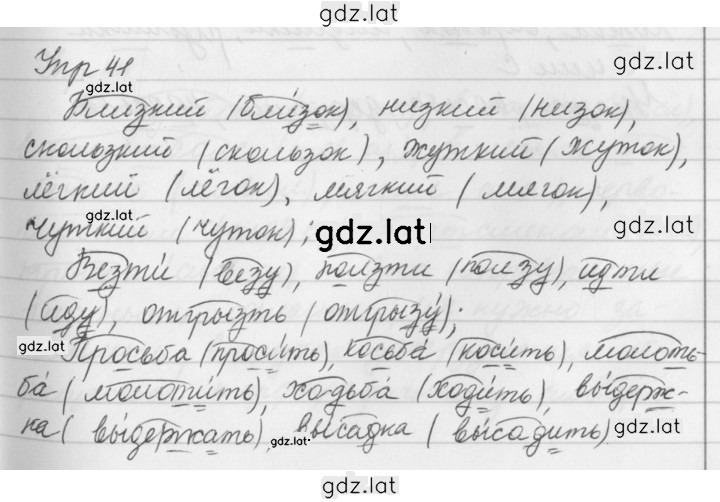 gdz.lat
Упр 41
gdz.lat
gdz.lat
Близкий (бли́зок), низкий (низок),
скользкий (скользок), жуткий (жуток),
лёгкий (лёгок), мягкий (мягок),
gdz.lat
gdz.lat
чуткий (чуток);
gdz.lat
Везти́ (везу), ползти (ползу), идти
(иду), отгрызть (отгрызу́);
gdz.lat
gdz.lat
Просьба (проси́ть), косьба́ (коси́ть), молоть-
ба́ (молоти́ть), ходьба́ (ходи́ть), вы́держ-
ка (вы́держать), высадка (вы́садить)
gdz.lat
gdz.lat
gdz.lat